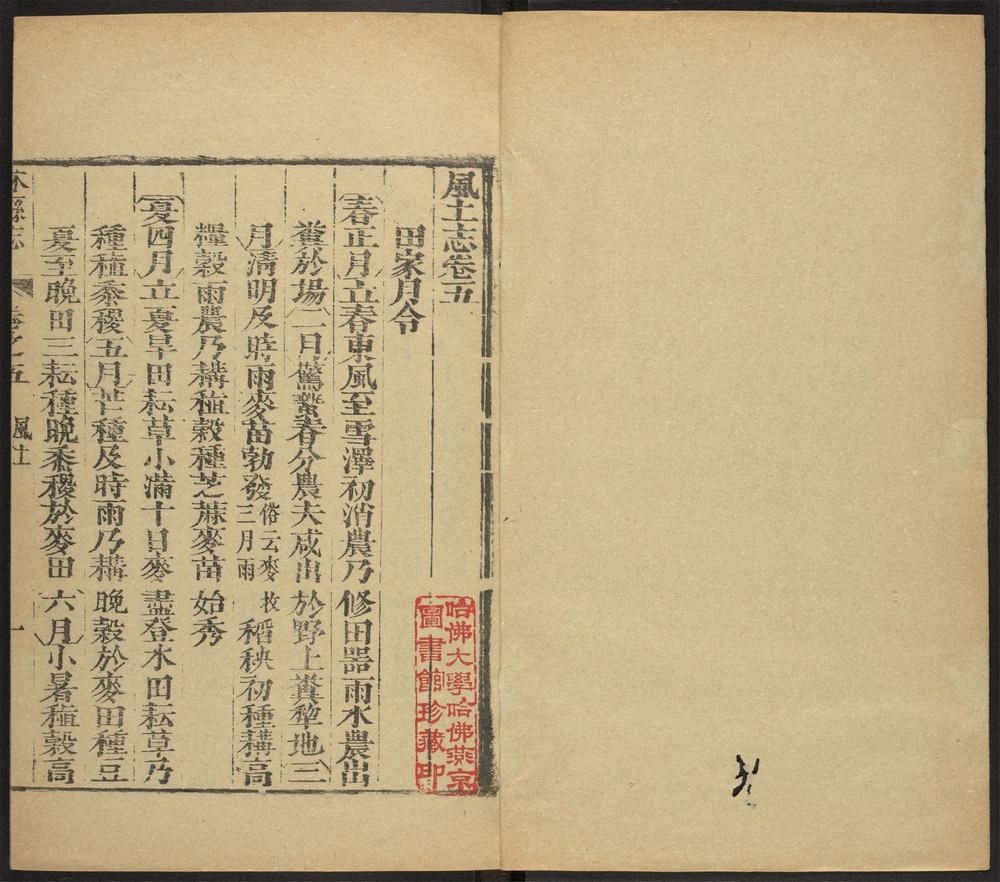 風土志卷五
田家月令
春正月立春東風至雪澤初消農乃修田器雨水農出
糞於場二月驚蟄春分農夫咸出於野上糞犂地三
月清明及時雨麥苗勃發俗云麥三月雨稻秧初種耩高
糧穀雨農乃耩稙穀種芝蔴麥苗始秀
夏四月立夏旱田耘草小滿十日麥盡登水田耘草乃
種稙黍稷五月芒種及時雨乃耩晚穀於麥田種豆
夏至晚田三耘種晚黍稷於麥田六月小暑稙穀高
林縣志 卷之五 風土 一
哈佛大學哈佛燕京
圖書館珍藏印